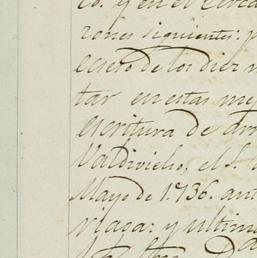 co. y en el cerca
zones siguientes: p
ceseto de los diez
tar en estas me
escritura de arr
Valdivielso, el S.
Mayo de 1736. ant
viaga: y ultim